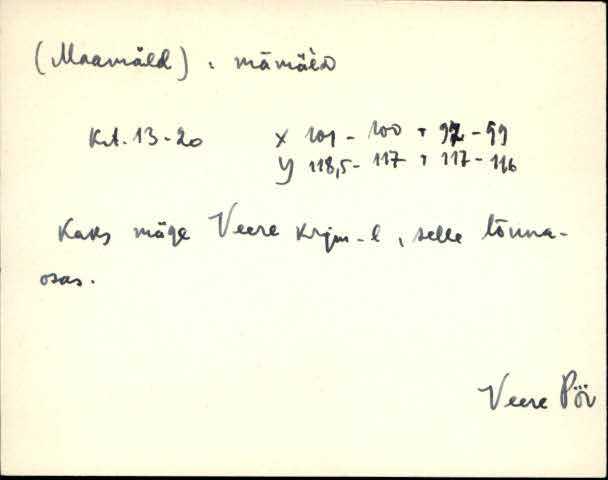 (Maamäed) : mämäed
Krt. 13-20 X 101 - 100 + 97 - 99
Y 118,5 - 117 + 117 - 116
Kaks mäge Veere krjm-l, selle lõuna-
osas.
Veere Pöi